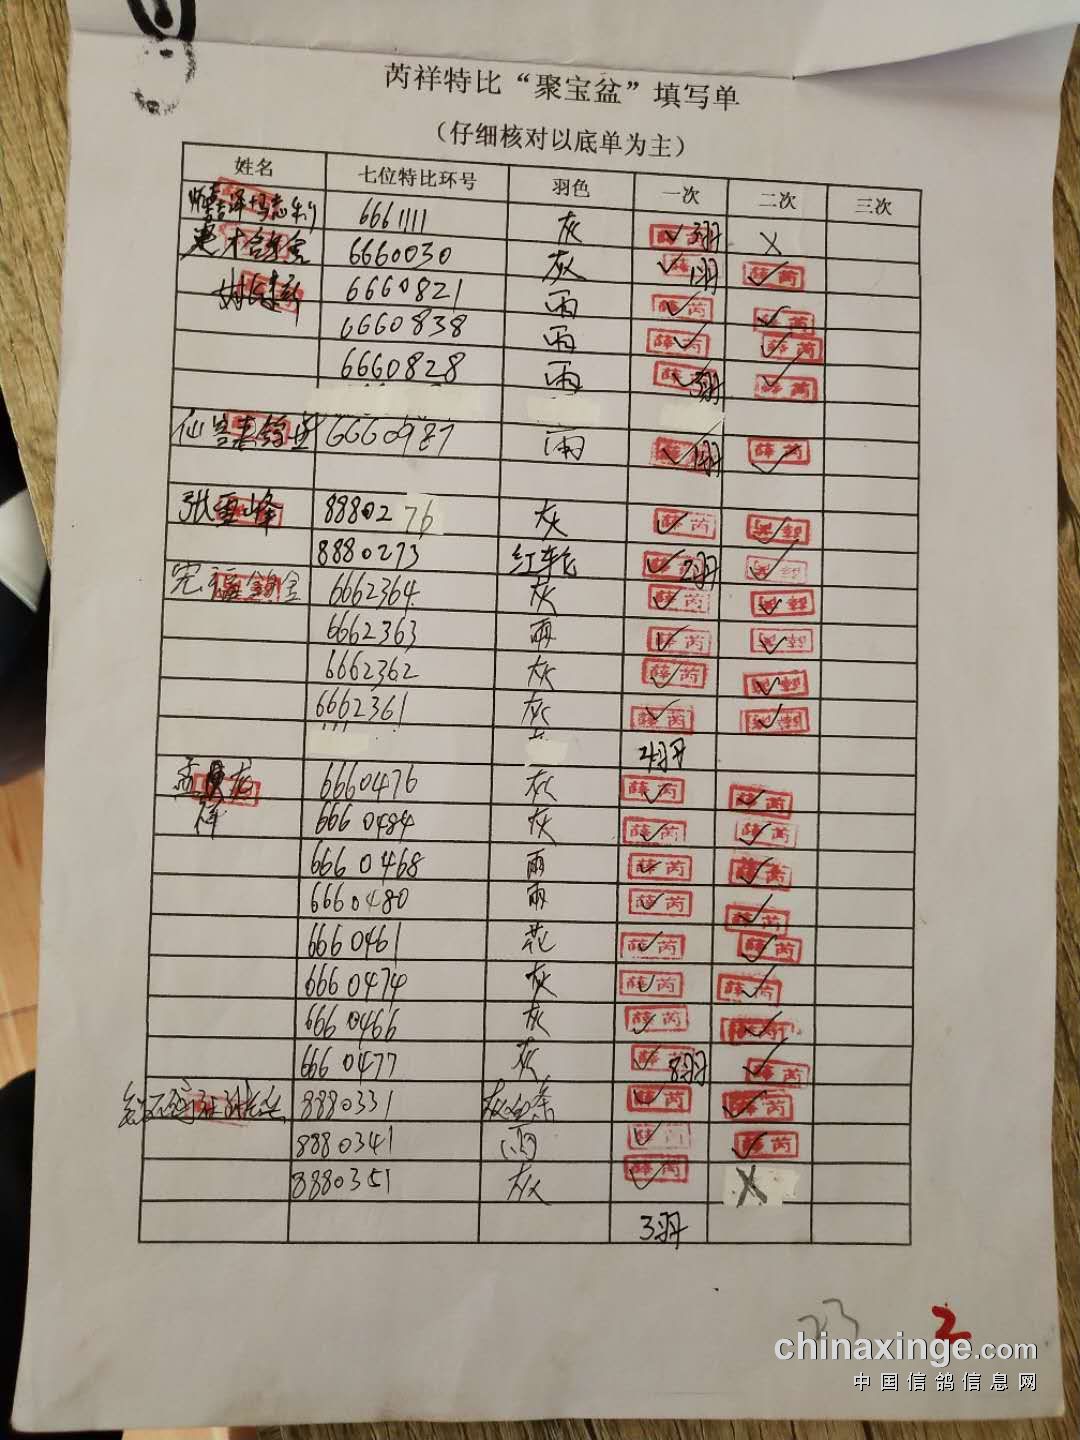 芮祥特比“聚宝盆”填写单
（仔细核对以底单为主）
姓名 七位特比环号 羽色 一次 二次 三次
6661111 灰 ✓ 3羽 X
6660030 灰 薛芮 ✓ 1羽 薛芮 ✓
6660821 雨 薛芮 ✓ 薛芮 ✓
6660838 雨 薛芮 ✓ 薛芮 ✓
6660828 雨 薛芮 ✓ 3羽 薛芮 ✓
6660987 雨 薛芮 ✓ 1羽 薛芮 ✓
张雪峰 8880276 灰 薛芮 ✓ ✓
8880273 红轮 ✓ 2羽 ✓
宪福鸽舍 6662364 灰 薛芮 ✓ ✓
6662363 雨 薛芮 ✓ ✓
6662362 灰 薛芮 ✓ ✓
6662361 灰 薛芮 ✓ ✓
4羽
6660476 灰 薛芮 ✓ 薛芮 ✓
6660484 灰 薛芮 ✓ 薛芮 ✓
6660468 雨 薛芮 ✓ 薛芮 ✓
6660480 雨 薛芮 ✓ 薛芮 ✓
6660461 花 薛芮 ✓ 薛芮 ✓
6660474 灰 薛芮 ✓ 薛芮 ✓
6660466 灰 薛芮 ✓ ✓
6660477 灰 薛芮 ✓ 8羽 薛芮 ✓
8880331 灰白条 薛芮 ✓ 薛芮 ✓
8880341 雨 薛芮 ✓ 薛芮 ✓
8880351 灰 薛芮 ✓ X
3羽
23 2
chinaxinge.com
中国信鸽信息网